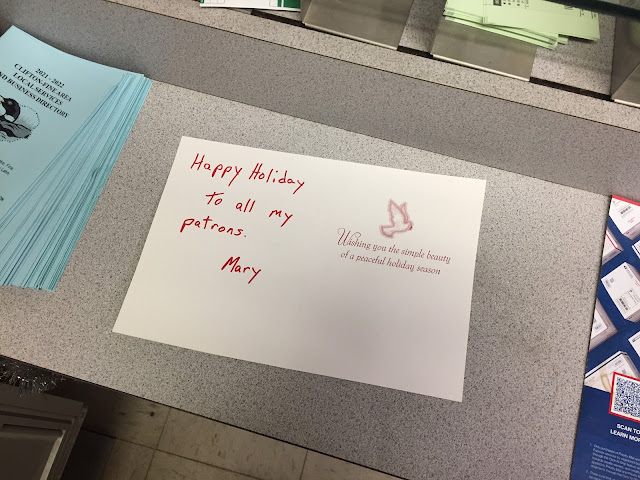 2021 - 2022
CLIFTON-FINE AREA
LOCAL SERVICES
BUSINESS DIRECTORY
Happy Holiday
to all my
patrons.
Mary
Wishing you the simple beauty
of a peaceful holiday season
SCAN TO
LEARN MO